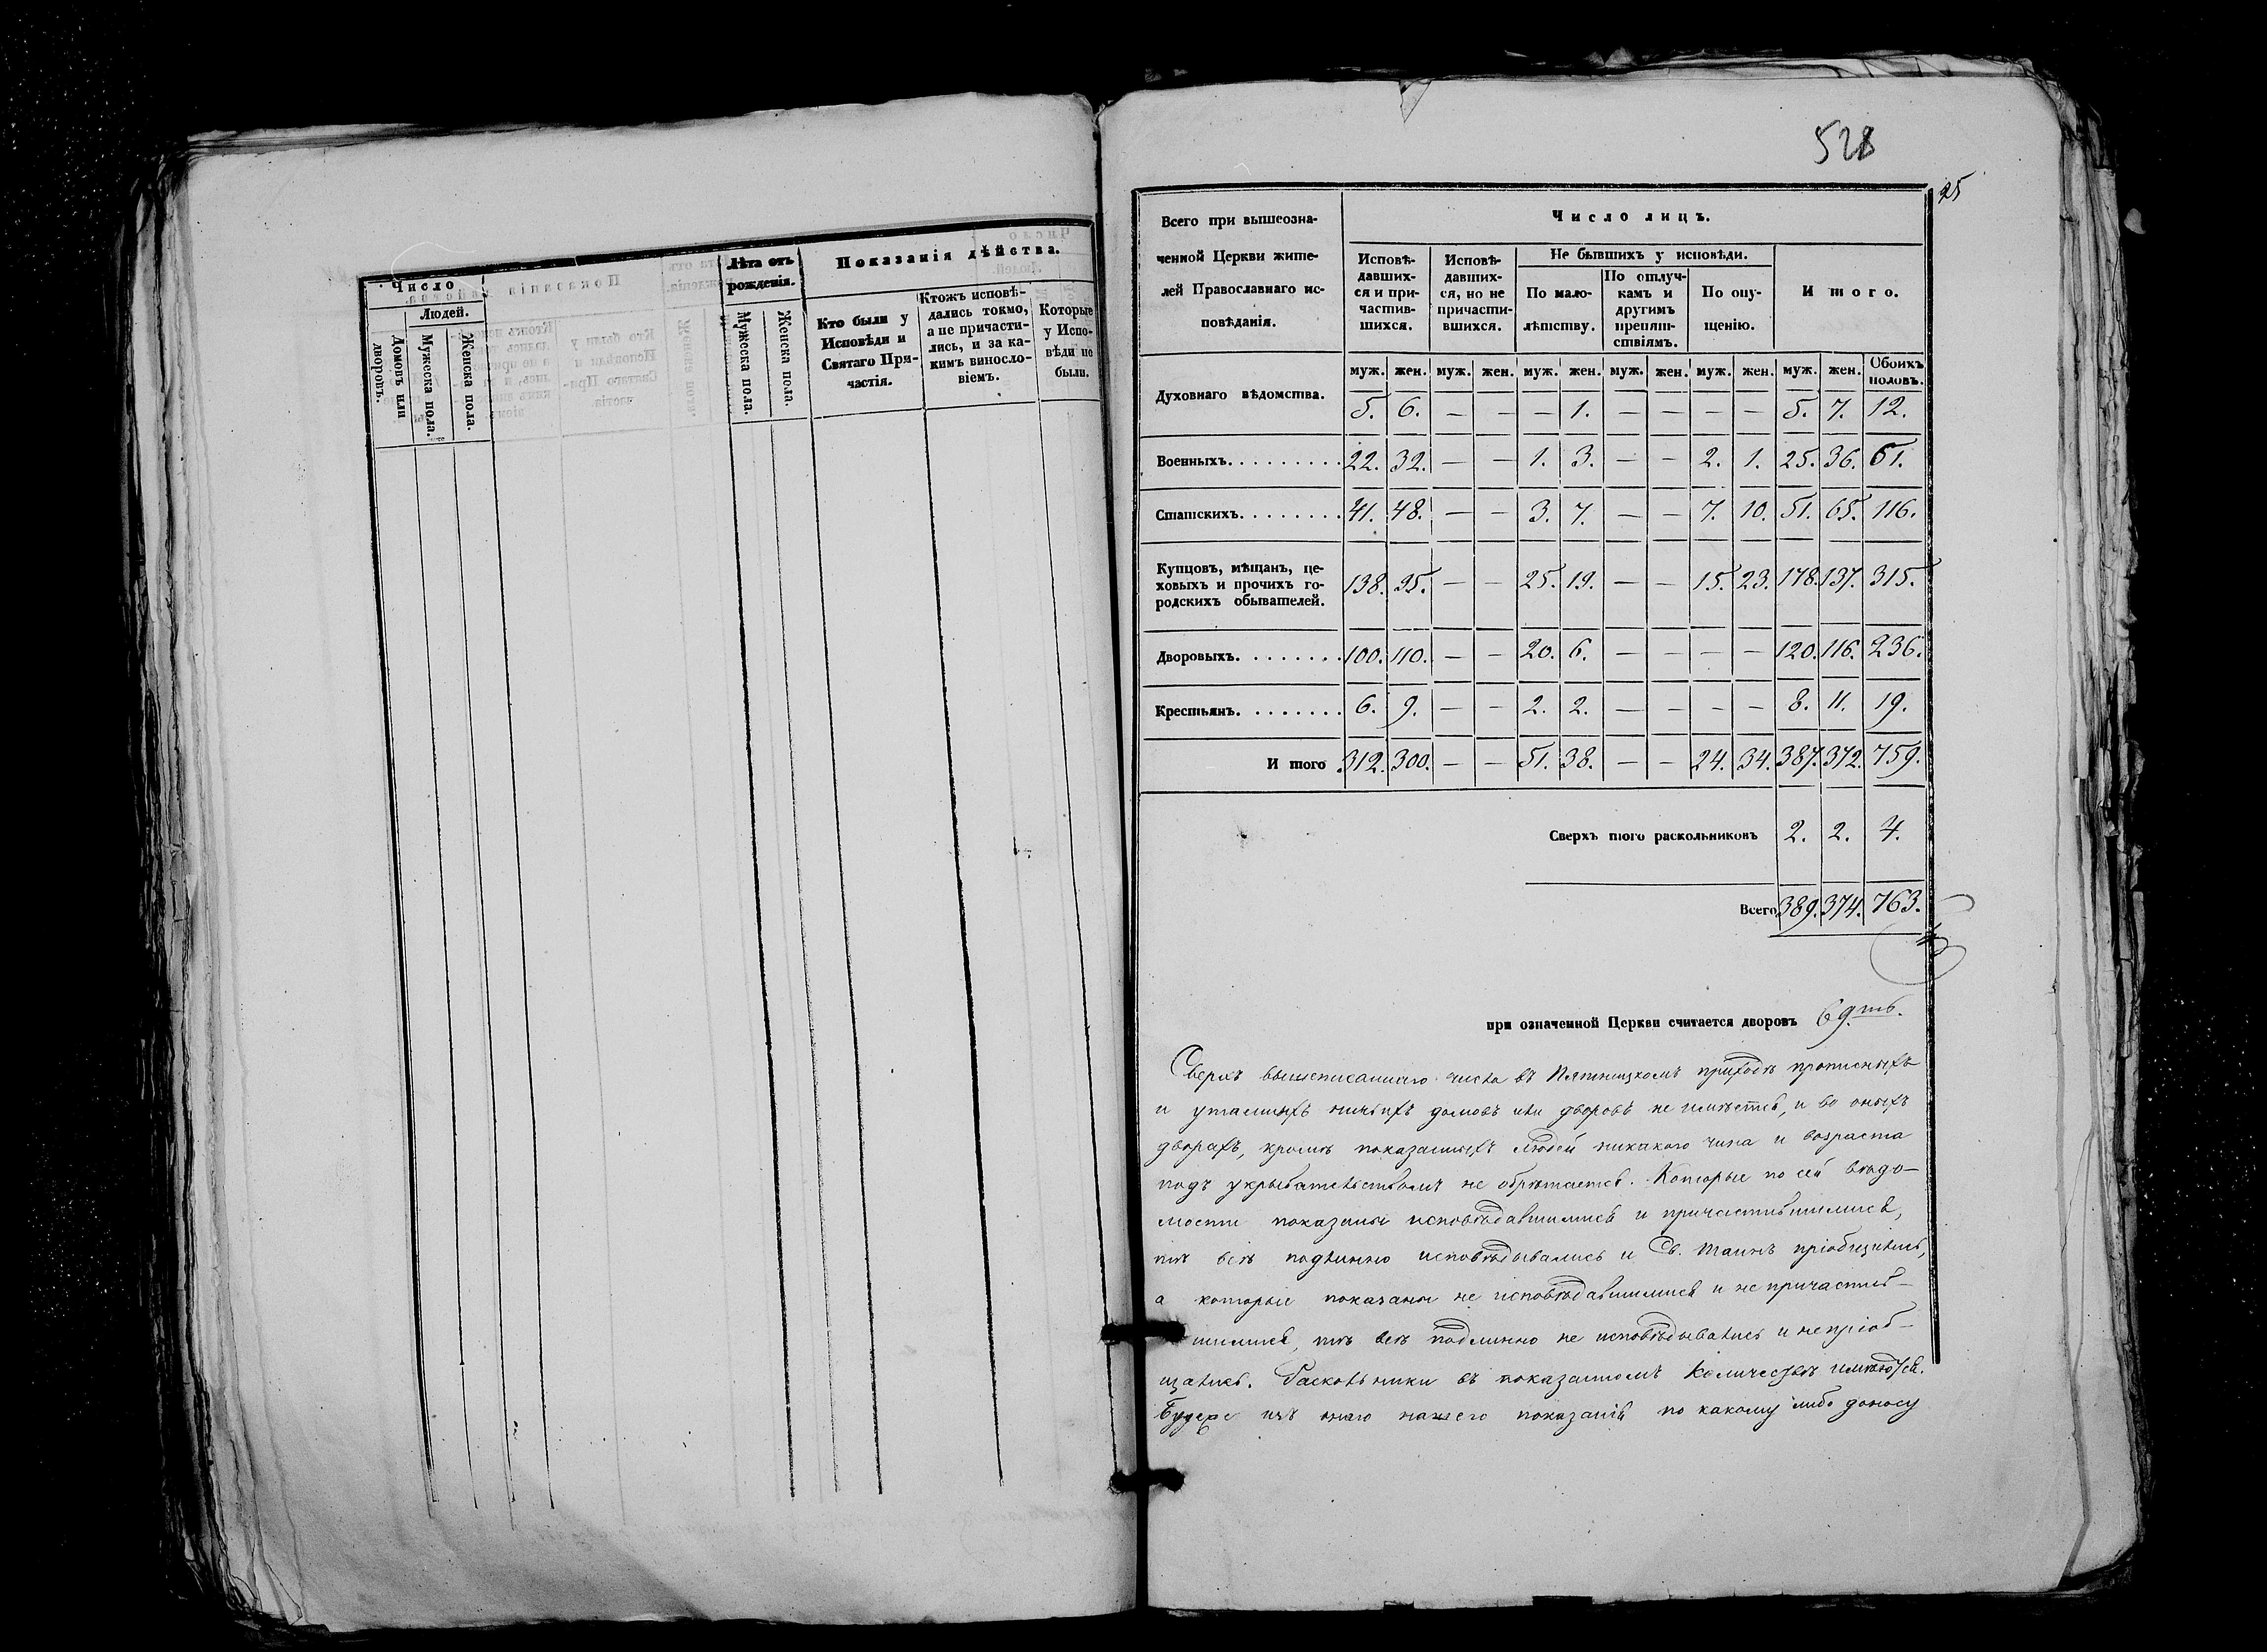 Число
Людей.
Домовъ или дворовъ.
Мужеска пола.
Женска пола.
Лѣта отъ
рожденія.
Мужеска пола.
Женска пола.
Показанія дѣйства.
Кто были у
Исповѣди и
Святаго При-
частія.
Ктожъ исповѣ-
дались токмо,
а не причасти-
лись, и за ка-
кимъ винословіемъ.
Которые
у Испо-
вѣди не
были.
25
Всего при вышеозна-
ченной Церкви жите-
лей Православнаго ис-
повѣданія.
Число лицъ.
Исповѣ-
давших-
ся и при-
частив-
шихся.
Исповѣ-
давших-
ся, но не
причасти-
вшихся.
Не бывшихъ у исповѣди.
По мало-
лѣтству.
По отлуч-
камъ и
другимъ
препят-
ствіямъ.
По опу-
щенію.
Итого.
муж. жен. муж. жен. муж. жен. муж. жен. муж. жен. муж. жен. Обоихъ половъ.
Духовнаго вѣдомства. 5. 6. — — — 1. — — — — 5. 7. 12.
Военныхъ. . . . . . . . . 22. 32. — — 1. 3. — — 2. 1. 25. 36. 61.
Статскихъ. . . . . . . . 41. 48. — — 3. 7. — — 7. 10. 51. 65. 116.
Купцовъ, мѣщанъ, це-
ховыхъ и прочихъ го-
родскихъ обывателей. 138. 95. — — 25. 19. — — 15. 23. 178. 137. 315.
Дворовыхъ. . . . . . . . 100. 110. — — 20. 6. — — — — 120. 116. 236.
Крестьянъ. . . . . . . . 6. 9. — — 2. 2. — — — — 8. 11. 19.
Итого 312. 300. — — 51. 38. — — 24. 34. 387. 372. 759.
Сверхъ того раскольниковъ 2. 2. 4.
Всего 389. 374. 763.
при означенной Церкви считается дворовъ 69.ть.
Сверхъ вышеписаннаго числа въ Пятницкомъ приходѣ прописныхъ
и утаиныхъ никихъ домовъ или дворовъ не имѣется, и во оныхъ
дворахъ, кромѣ показанныхъ людей никакого чина и возраста
подъ укрывательствомъ не обрѣтается. Которые по сей вѣдо-
мости показаны исповѣдавшимися и причастившимися,
тѣ всѣ подлинно исповѣдывались и Св. Таинъ пріобщились,
а которые показаны не исповѣдавшимися и не причастив-
шимися, тѣ всѣ подлинно не исповѣдывались и не пріоб-
щались. Раскольники въ показанномъ количествѣ имѣются.
Будеже изъ онаго нашего показанія по какому либо доносу